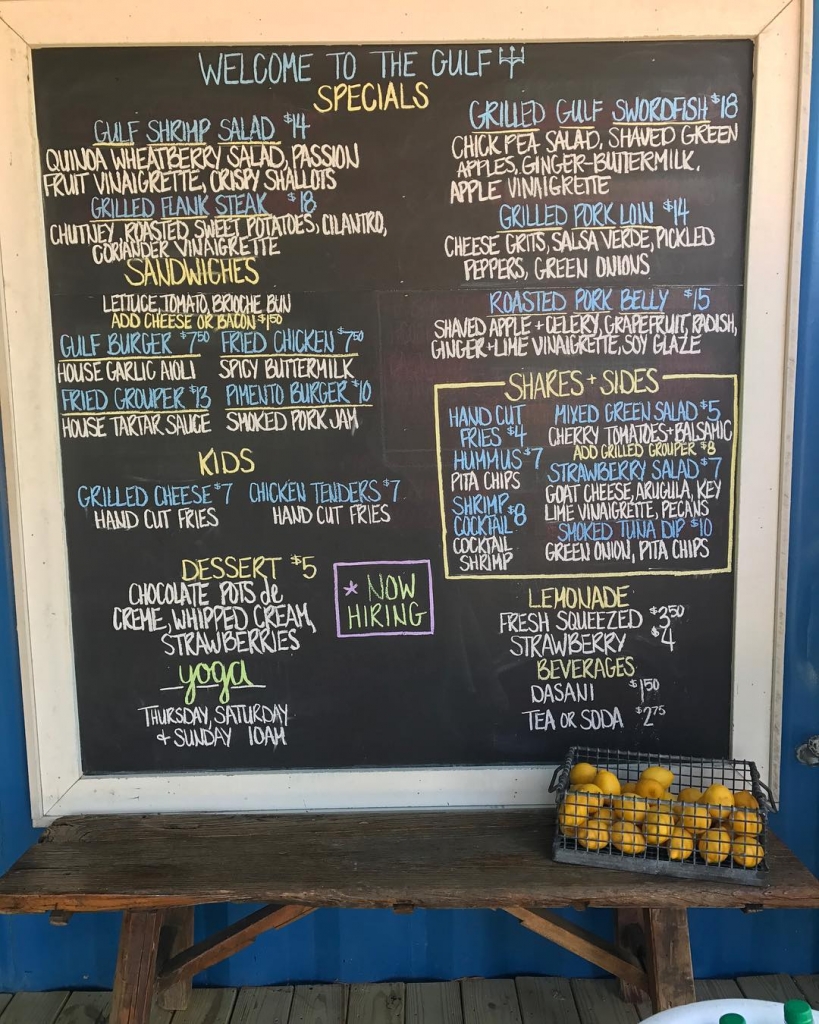 WELCOME TO THE GULF
SPECIALS
GULF SHRIMP SALAD $14
QUINOA WHEATBERRY SALAD, PASSION
FRUIT VINAIGRETTE, CRISPY SHALLOTS
GRILLED FLANK STEAK $18
CHUTNEY, ROASTED SWEET POTATOES, CILANTRO,
CORIANDER VINAIGRETTE
SANDWICHES
LETTUCE, TOMATO, BRIOCHE BUN
ADD CHEESE OR BACON $1.50
GULF BURGER $7.50 FRIED CHICKEN $7.50
HOUSE GARLIC AIOLI SPICY BUTTERMILK
FRIED GROUPER $13 PIMENTO BURGER $10
HOUSE TARTAR SAUCE SMOKED PORK JAM
KIDS
GRILLED CHEESE $7 CHICKEN TENDERS $7
HAND CUT FRIES HAND CUT FRIES
DESSERT $5
CHOCOLATE POTS de
CREME, WHIPPED CREAM,
STRAWBERRIES
yoga
THURSDAY, SATURDAY
+ SUNDAY 10AM
* NOW
HIRING
GRILLED GULF SWORDFISH $18
CHICK PEA SALAD, SHAVED GREEN
APPLES, GINGER-BUTTERMILK,
APPLE VINAIGRETTE
GRILLED PORK LOIN $14
CHEESE GRITS, SALSA VERDE, PICKLED
PEPPERS, GREEN ONIONS
ROASTED PORK BELLY $15
SHAVED APPLE + CELERY, GRAPEFRUIT, RADISH,
GINGER + LIME VINAIGRETTE, SOY GLAZE
SHARES + SIDES
HAND CUT
FRIES $4
HUMMUS $7
PITA CHIPS
SHRIMP
COCKTAIL $8
COCKTAIL
SHRIMP
MIXED GREEN SALAD $5
CHERRY TOMATOES + BALSAMIC
ADD GRILLED GROUPER $8
STRAWBERRY SALAD $7
GOAT CHEESE, ARUGULA, KEY
LIME VINAIGRETTE, PECANS
SMOKED TUNA DIP $10
GREEN ONION, PITA CHIPS
LEMONADE
FRESH SQUEEZED $3.50
STRAWBERRY $4
BEVERAGES
DASANI $1.50
TEA OR SODA $2.75